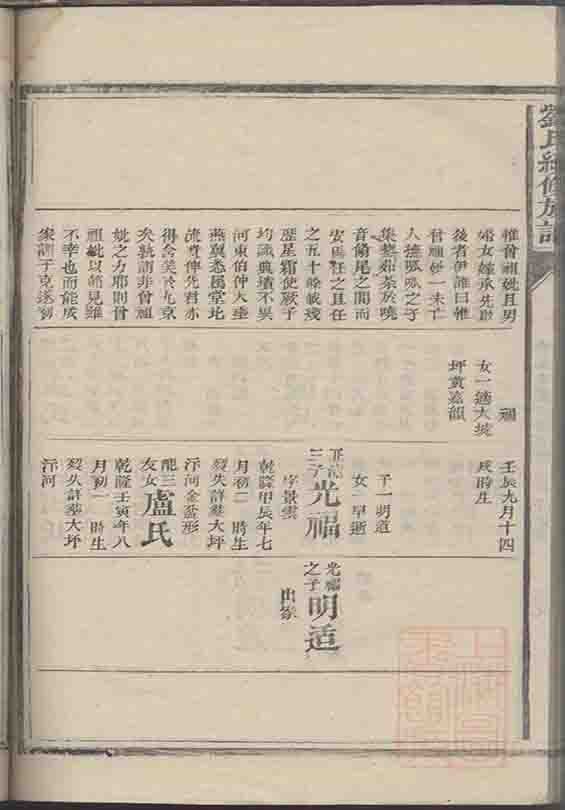 劉氏續修族譜
惟曾祖妣且男
婚女嫁承先啟
後者伊誰曰惟
曾祖妣一未亡
人撫呱呱之子
集蓼茹荼於曉
音翛尾之間而
安焉任之且任
之五十餘載殘
歷星霜使厥子
均讀典墳不異
河東伯仲大垂
燕翼悉屬堂北
流貲俾先君亦
得含笑於九京
矣孰謂非曾祖
妣之力耶則曾
祖妣以節見雖
不幸也而能成
福
女一適大坡
坪黃嘉韻
壬辰九月十四
戌時生
子一明道
女一早逝
三子光福
字景雲
乾隆甲辰年七
月初二時生
歿失詳葬大坪
汴河金盆形
龍三友女盧氏
乾隆壬寅年八
月初一時生
歿失詳葬大坪
汴河
光福之子明道
出繼